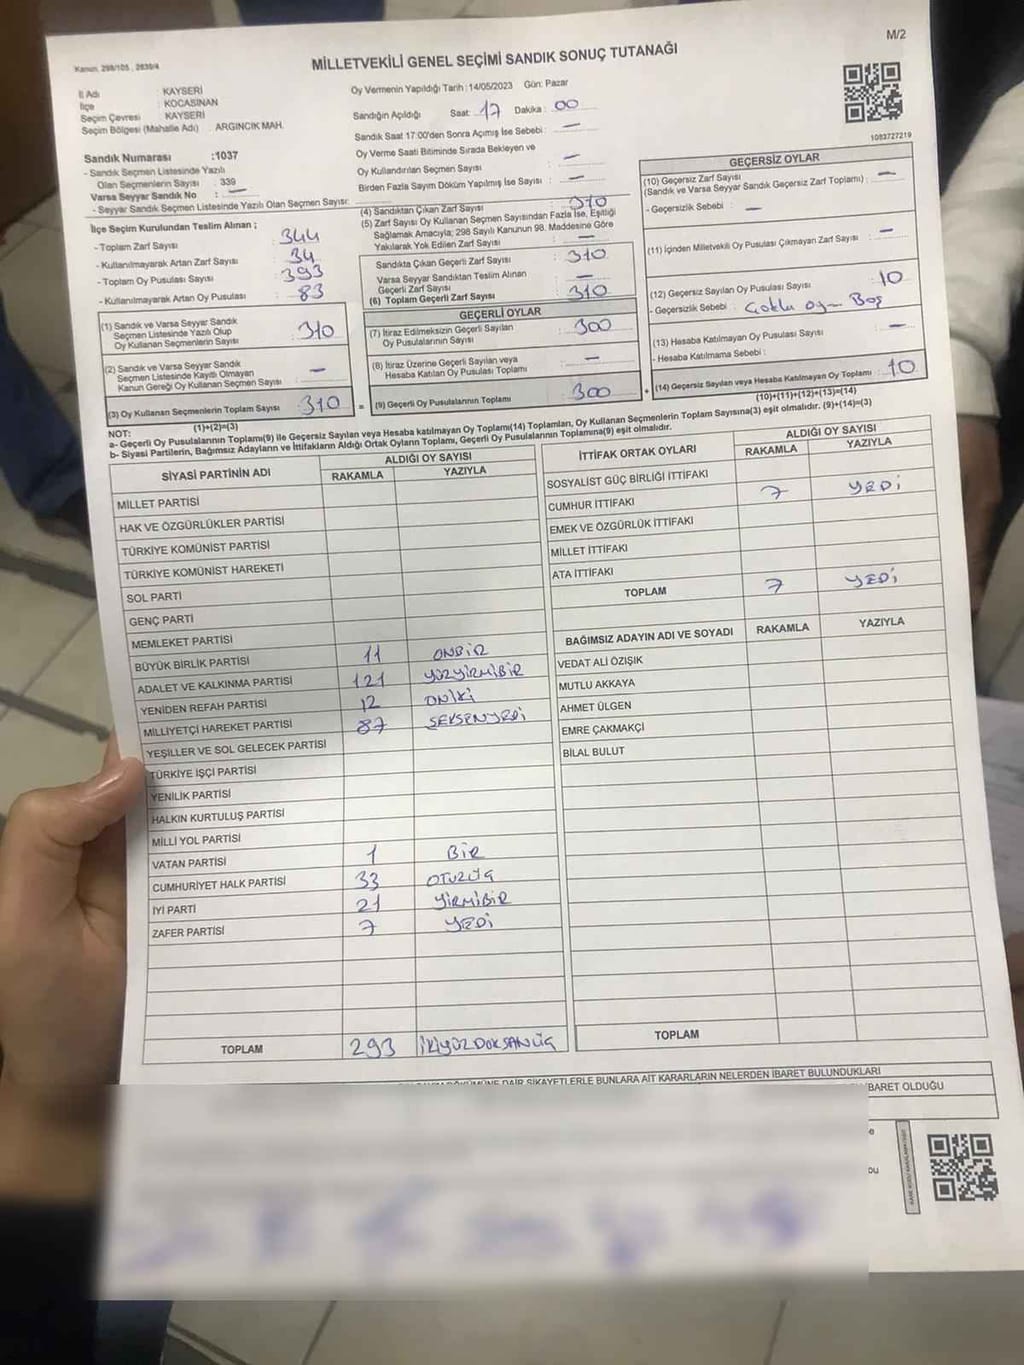 M/2
Kanun: 298/105 , 2839/4
MİLLETVEKİLİ GENEL SEÇİMİ SANDIK SONUÇ TUTANAĞI
İl Adı : KAYSERİ
İlçe : KOCASİNAN
Seçim Çevresi : KAYSERİ
Seçim Bölgesi (Mahalle Adı) : ARGINCIK MAH.
Oy Vermenin Yapıldığı Tarih : 14/05/2023 Gün: Pazar
Sandığın Açıldığı Saat: 17 Dakika : 00
Sandık Saat 17:00'den Sonra Açılmış İse Sebebi : —
Oy Verme Saati Bitiminde Sırada Bekleyen ve
Oy Kullandırılan Seçmen Sayısı : —
Birden Fazla Sayım Döküm Yapılmış İse Sayısı : —
1083727219
Sandık Numarası :1037
- Sandık Seçmen Listesinde Yazılı
Olan Seçmenlerin Sayısı : 339
Varsa Seyyar Sandık No : —
- Seyyar Sandık Seçmen Listesinde Yazılı Olan Seçmen Sayısı:
İlçe Seçim Kurulundan Teslim Alınan ;
- Toplam Zarf Sayısı : 344
- Kullanılmayarak Artan Zarf Sayısı : 34
- Toplam Oy Pusulası Sayısı : 393
- Kullanılmayarak Artan Oy Pusulası : 83
(1) Sandık ve Varsa Seyyar Sandık
Seçmen Listesinde Yazılı Olup
Oy Kullanan Seçmenlerin Sayısı : 310
(2) Sandık ve Varsa Seyyar Sandık
Seçmen Listesinde Kayıtlı Olmayan
Kanun Gereği Oy Kullanan Seçmen Sayısı : —
(3) Oy Kullanan Seçmenlerin Toplam Sayısı : 310
(1)+(2)=(3)
(4) Sandıktan Çıkan Zarf Sayısı : 310
(5) Zarf Sayısı Oy Kullanan Seçmen Sayısından Fazla İse, Eşitliği
Sağlamak Amacıyla; 298 Sayılı Kanunun 98. Maddesine Göre
Yakılarak Yok Edilen Zarf Sayısı : —
Sandıkta Çıkan Geçerli Zarf Sayısı : 310
Varsa Seyyar Sandıktan Teslim Alınan
Geçerli Zarf Sayısı : —
(6) Toplam Geçerli Zarf Sayısı : 310
GEÇERLİ OYLAR
(7) İtiraz Edilmeksizin Geçerli Sayılan
Oy Pusulalarının Sayısı : 300
(8) İtiraz Üzerine Geçerli Sayılan veya
Hesaba Katılan Oy Pusulası Toplamı : —
= (9) Geçerli Oy Pusulalarının Toplamı : 300
GEÇERSİZ OYLAR
(10) Geçersiz Zarf Sayısı
(Sandık ve Varsa Seyyar Sandık Geçersiz Zarf Toplamı) : —
- Geçersizlik Sebebi : —
(11) İçinden Milletvekili Oy Pusulası Çıkmayan Zarf Sayısı : —
(12) Geçersiz Sayılan Oy Pusulası Sayısı : 10
- Geçersizlik Sebebi : Çoklu oy - Boş
(13) Hesaba Katılmayan Oy Pusulası Sayısı : —
- Hesaba Katılmama Sebebi :
+ (14) Geçersiz Sayılan veya Hesaba Katılmayan Oy Toplamı : 10
(10)+(11)+(12)+(13)=(14)
NOT:
a- Geçerli Oy Pusulalarının Toplamı(9) ile Geçersiz Sayılan veya Hesaba katılmayan Oy Toplamı(14) Toplamları, Oy Kullanan Seçmenlerin Toplam Sayısına(3) eşit olmalıdır. (9)+(14)=(3)
b- Siyasi Partilerin, Bağımsız Adayların ve İttifakların Aldığı Ortak Oyların Toplamı, Geçerli Oy Pusulalarının Toplamına(9) eşit olmalıdır.
SİYASİ PARTİNİN ADI ALDIĞI OY SAYISI
RAKAMLA YAZIYLA
MİLLET PARTİSİ
HAK VE ÖZGÜRLÜKLER PARTİSİ
TÜRKİYE KOMÜNİST PARTİSİ
TÜRKİYE KOMÜNİST HAREKETİ
SOL PARTİ
GENÇ PARTİ
MEMLEKET PARTİSİ
BÜYÜK BİRLİK PARTİSİ 11 ONBİR
ADALET VE KALKINMA PARTİSİ 121 YÜZYİRMİBİR
YENİDEN REFAH PARTİSİ 12 ONİKİ
MİLLİYETÇİ HAREKET PARTİSİ 87 SEKSENYEDİ
YEŞİLLER VE SOL GELECEK PARTİSİ
TÜRKİYE İŞÇİ PARTİSİ
YENİLİK PARTİSİ
HALKIN KURTULUŞ PARTİSİ
MİLLİ YOL PARTİSİ
VATAN PARTİSİ 1 BİR
CUMHURİYET HALK PARTİSİ 33 OTUZÜÇ
İYİ PARTİ 21 YİRMİBİR
ZAFER PARTİSİ 7 YEDİ
TOPLAM 293 İKİYÜZDOKSANÜÇ
İTTİFAK ORTAK OYLARI ALDIĞI OY SAYISI
RAKAMLA YAZIYLA
SOSYALİST GÜÇ BİRLİĞİ İTTİFAKI
CUMHUR İTTİFAKI 7 YEDİ
EMEK VE ÖZGÜRLÜK İTTİFAKI
MİLLET İTTİFAKI
ATA İTTİFAKI
TOPLAM 7 YEDİ
BAĞIMSIZ ADAYIN ADI VE SOYADI RAKAMLA YAZIYLA
VEDAT ALİ ÖZIŞIK
MUTLU AKKAYA
AHMET ÜLGEN
EMRE ÇAKMAKÇI
BİLAL BULUT
TOPLAM
DAİR ŞİKAYETLERLE BUNLARA AİT KARARLARIN NELERDEN İBARET BULUNDUKLARI
BARET OLDUĞU